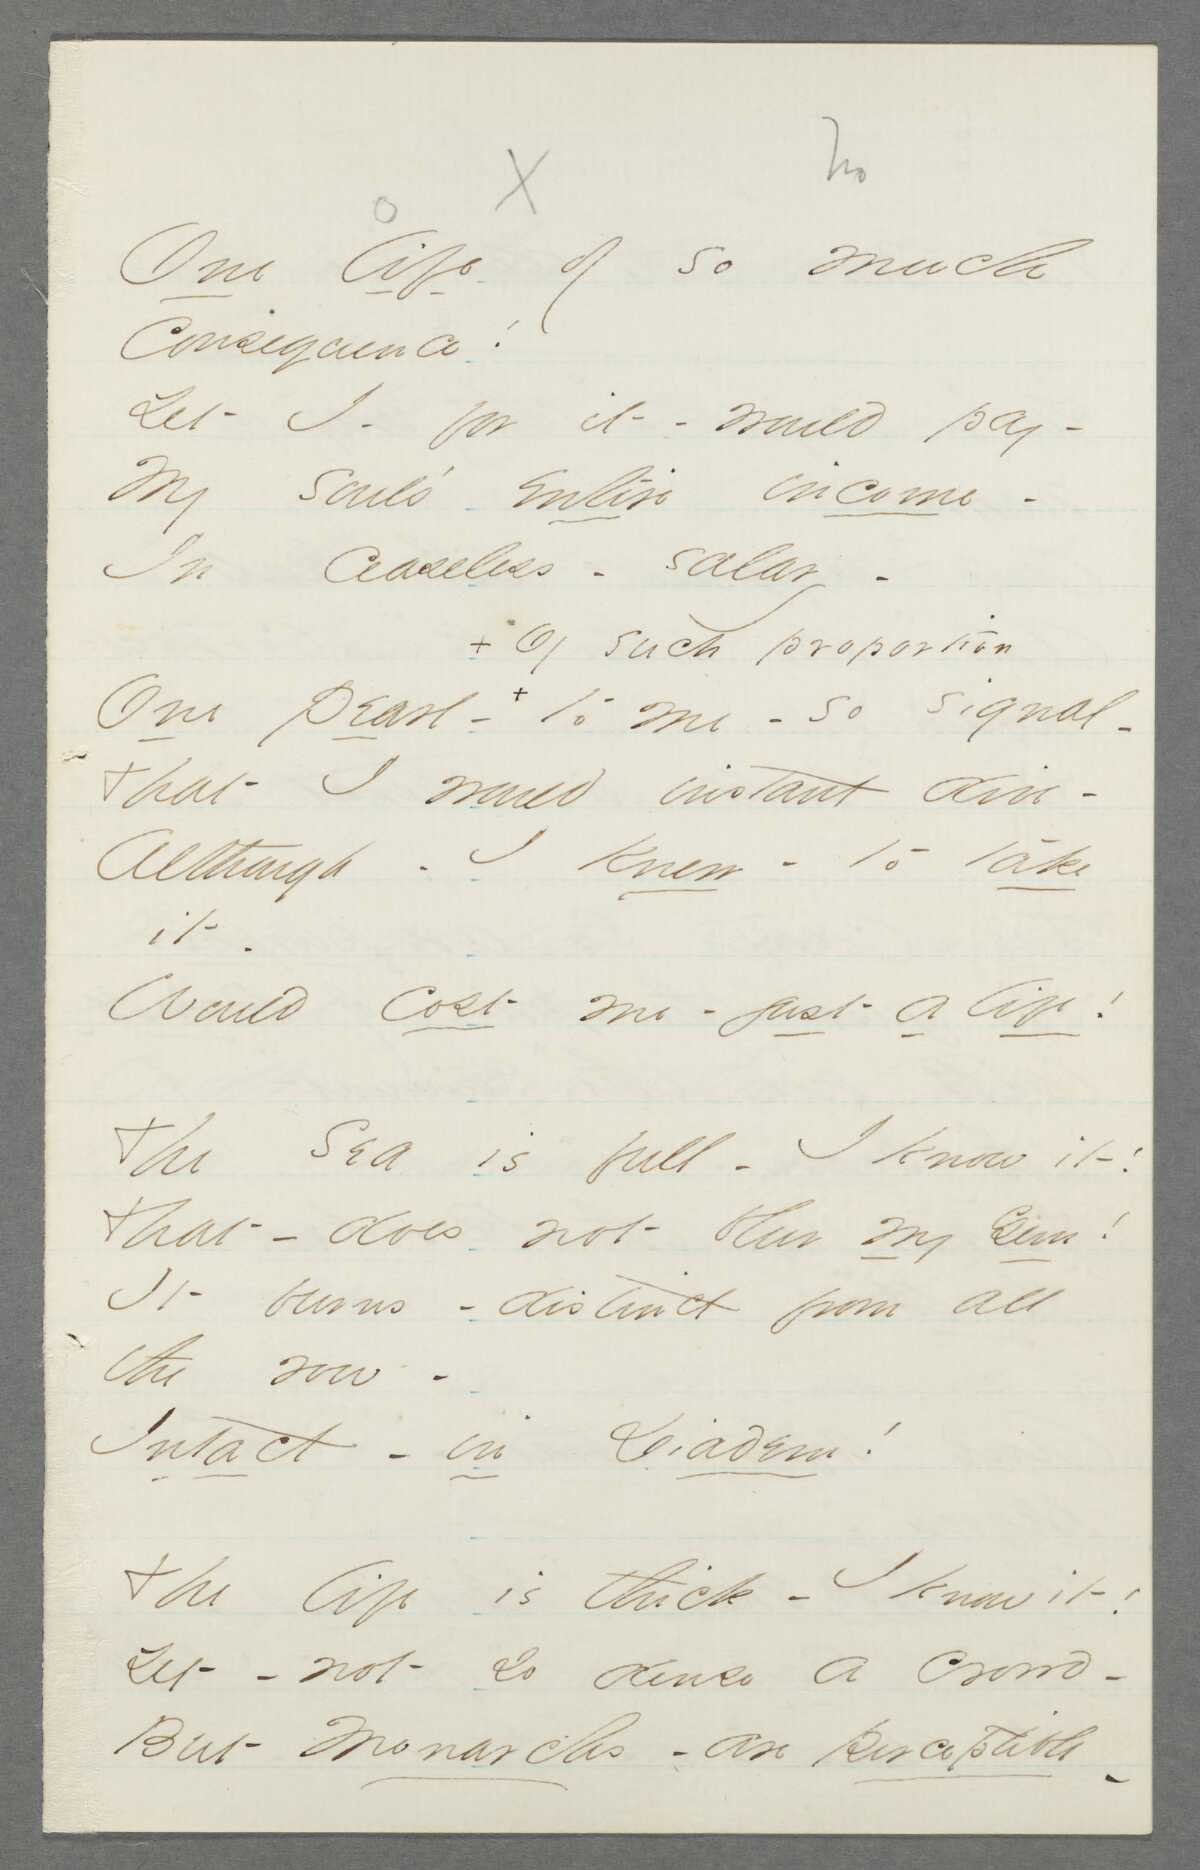 o X no
One Life of so much
Consequence!
Yet I - for it - would pay -
My Soul's Entire income -
In ceaseless - salary -
+ Of such proportion
One Pearl - + to me - so signal -
That I would instant dive -
Although - I knew - to take
it -
Would cost me - just a life!
The Sea is full - I know it!
That - does not blur my Gem!
It burns - distinct from all
the row -
Intact - in Diadem!
The life is thick - I know it!
Yet - not so dense a crowd -
But Monarchs - are perceptible -